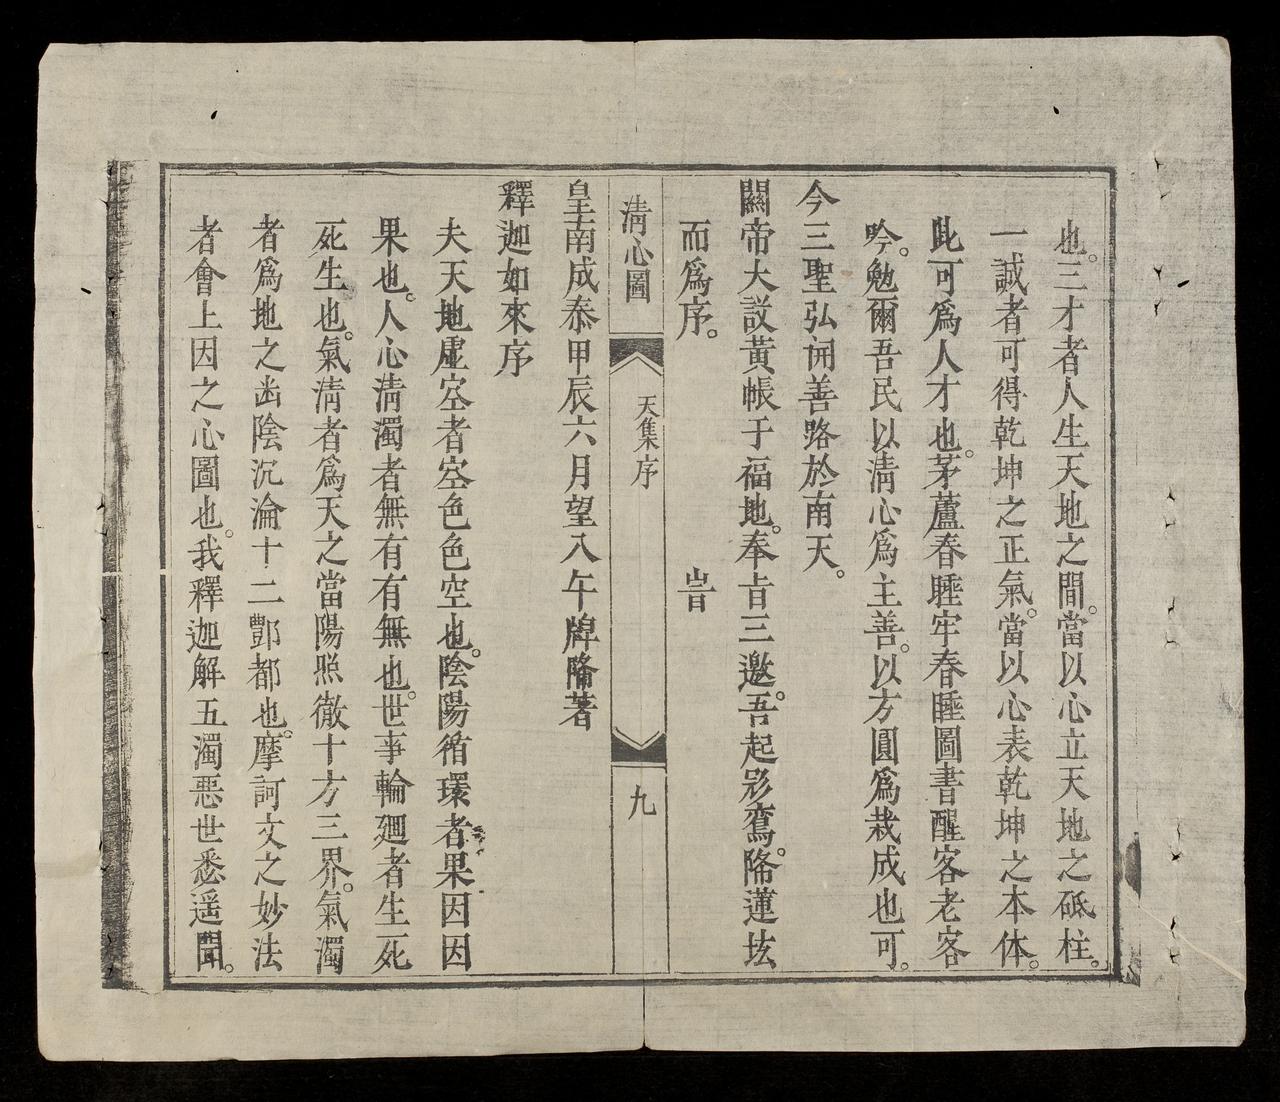 也。三才者人生天地之間。當以心立天地之砥柱。
一誠者可得乾坤之正氣。當以心表乾坤之本体。
此可爲人才也。茅蘆春睡牢春睡圖書醒客老客
吟。勉爾吾民以清心爲主善。以方圓爲栽成也可。
今三聖弘開善路於南天。
關帝大設黄帳于福地。奉旨三邀。吾起彩鸞。降蓮坛
而爲序。 旹
清心圖 天集序 九
皇南成泰甲辰六月望入午牌降著
釋迦如來序
夫天地虛空者空色色空也。陰陽循環者果因因
果也。人心清濁者無有有無也。世事輪廻者生死
死生也。氣清者爲天之當陽照徹十方三界。氣濁
者爲地之幽陰沉淪十二酆都也。摩訶文之妙法
者會上因之心圖也。我釋迦解五濁惡世悉遥聞。